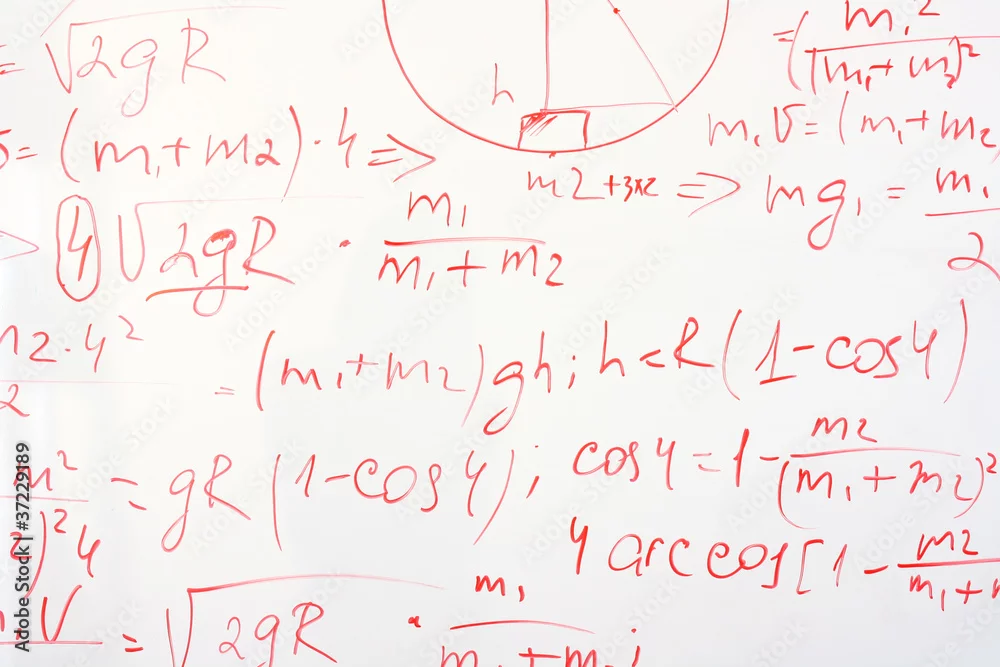 = √2gR
h
= ( m₁²
(m₁+m₂)²
= (m₁+m2)·4 ⇒
m₁V = (m₁+m2
m2+3x2 ⇒ mg₁ = m₁
2
4 √2gR · m₁
m₁+m2
m2·4²
2
= (m₁+m2)gh; h < R(1-cos4)
= gR(1-cos4); cos4 = 1- m2
(m₁+m2)²
)²4
4 arccos[1- m2
m₁+m
V = √2gR · m₁
Adobe Stock | #37229189